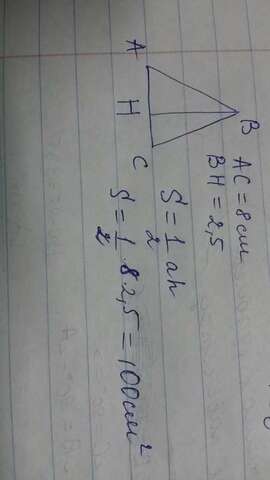 A
B
H
C
AC = 8 см
BH = 2,5
S = 1/2 ah
S = 1/2 8 2,5 = 100 см²